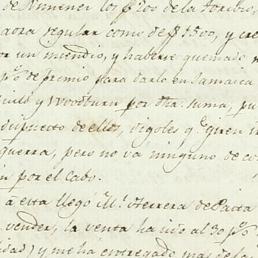 de Ximenez los p.r 20s de la toribio,
aora regular como de $1500, y cre
or un incendio, y haverse quemado
p%o de premio para darlo en Jamaica
y Woodburn por dha. suma, pu
dispuesto de ellos, digoles q.e giren
guerra, pero no va ninguno de co
n por el Cabo.
à esta llego M.l Herrera de Pasta
vender, la venta ha sido al 30 p%o
idad) y me há entregado mas de la